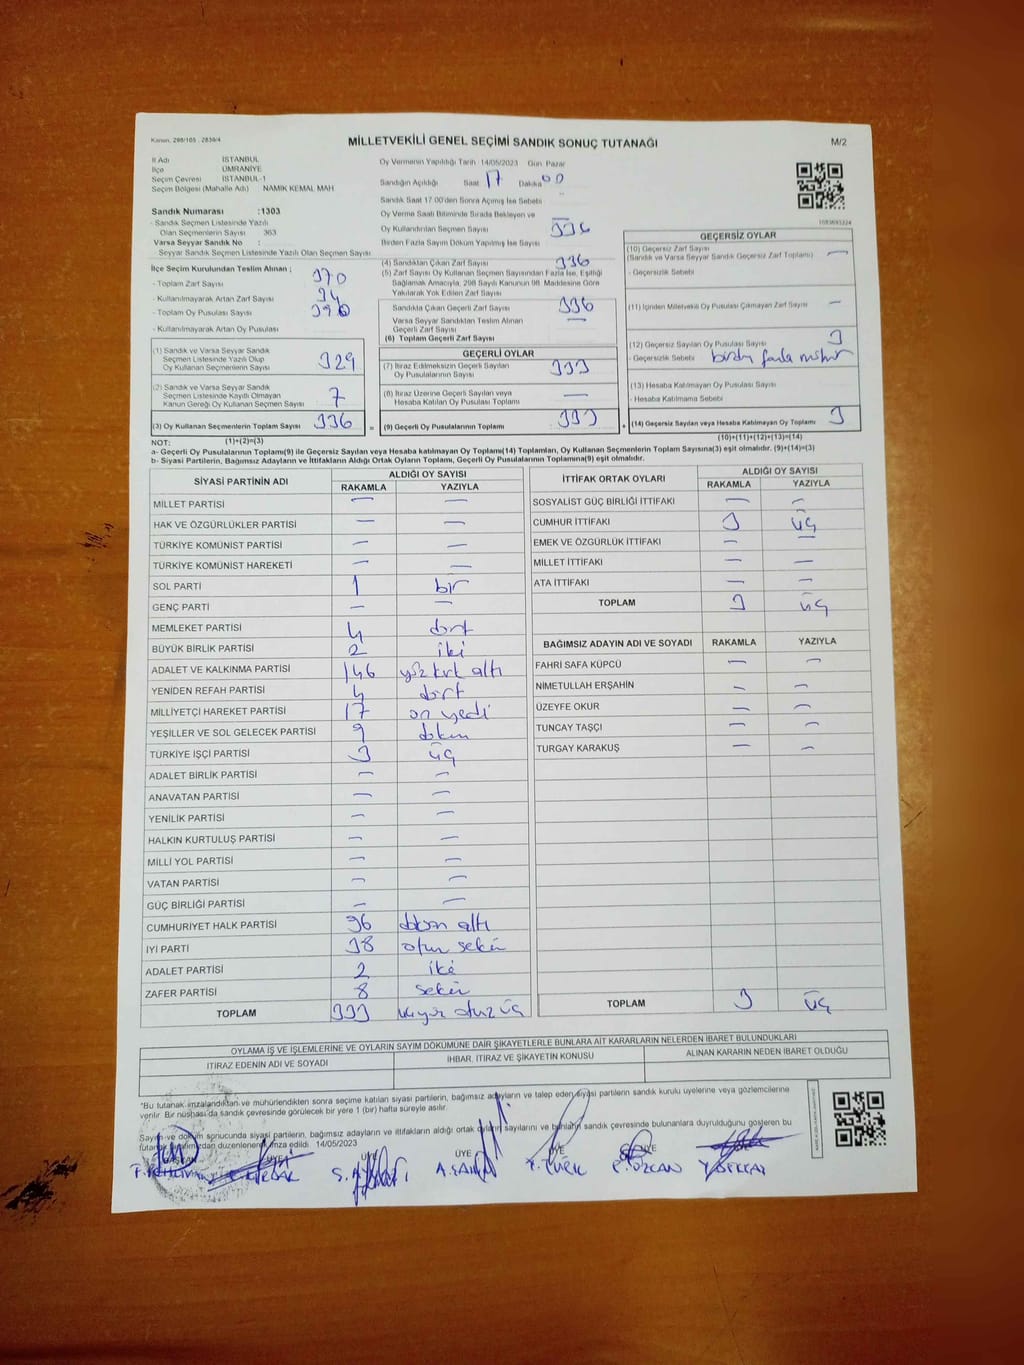 Kanun. 298/105 . 2839/4
MİLLETVEKİLİ GENEL SEÇİMİ SANDIK SONUÇ TUTANAĞI
M/2
İl Adı İSTANBUL
İlçe ÜMRANİYE
Seçim Çevresi İSTANBUL-1
Seçim Bölgesi (Mahalle Adı) NAMIK KEMAL MAH
Sandık Numarası :1303
- Sandık Seçmen Listesinde Yazılı
Olan Seçmenlerin Sayısı 363
Varsa Seyyar Sandık No :
- Seyyar Sandık Seçmen Listesinde Yazılı Olan Seçmen Sayısı
İlçe Seçim Kurulundan Teslim Alınan ;
- Toplam Zarf Sayısı 370
- Kullanılmayarak Artan Zarf Sayısı 34
- Toplam Oy Pusulası Sayısı
- Kullanılmayarak Artan Oy Pusulası
(1) Sandık ve Varsa Seyyar Sandık
Seçmen Listesinde Yazılı Olup
Oy Kullanan Seçmenlerin Sayısı 329
(2) Sandık ve Varsa Seyyar Sandık
Seçmen Listesinde Kayıtlı Olmayan
Kanun Gereği Oy Kullanan Seçmen Sayısı 7
(3) Oy Kullanan Seçmenlerin Toplam Sayısı 336
Oy Vermenin Yapıldığı Tarih 14/05/2023 Gün Pazar
Sandığın Açıldığı Saat 17 Dakika 00
Sandık Saat 17.00'den Sonra Açılmış İse Sebebi
Oy Verme Saati Bitiminde Sırada Bekleyen ve
Oy Kullandırılan Seçmen Sayısı
336
Birden Fazla Sayım Döküm Yapılmış İse Sayısı
(4) Sandıktan Çıkan Zarf Sayısı 336
(5) Zarf Sayısı Oy Kullanan Seçmen Sayısından Fazla İse, Eşitliği
Sağlamak Amacıyla, 298 Sayılı Kanunun 98. Maddesine Göre
Yakılarak Yok Edilen Zarf Sayısı
Sandıkta Çıkan Geçerli Zarf Sayısı 336
Varsa Seyyar Sandıktan Teslim Alınan
Geçerli Zarf Sayısı —
(6) Toplam Geçerli Zarf Sayısı
GEÇERLİ OYLAR
(7) İtiraz Edilmeksizin Geçerli Sayılan
Oy Pusulalarının Sayısı 333
(8) İtiraz Üzerine Geçerli Sayılan veya
Hesaba Katılan Oy Pusulası Toplamı —
= (9) Geçerli Oy Pusulalarının Toplamı 333
GEÇERSİZ OYLAR
(10) Geçersiz Zarf Sayısı
(Sandık ve Varsa Seyyar Sandık Geçersiz Zarf Toplamı) —
- Geçersizlik Sebebi
(11) İçinden Milletvekili Oy Pusulası Çıkmayan Zarf Sayısı —
(12) Geçersiz Sayılan Oy Pusulası Sayısı 3
- Geçersizlik Sebebi birden fazla mühür
(13) Hesaba Katılmayan Oy Pusulası Sayısı
- Hesaba Katılmama Sebebi
+ (14) Geçersiz Sayılan veya Hesaba Katılmayan Oy Toplamı 3
NOT: (1)+(2)=(3)
(10)+(11)+(12)+(13)=(14)
a- Geçerli Oy Pusulalarının Toplamı(9) ile Geçersiz Sayılan veya Hesaba katılmayan Oy Toplamı(14) Toplamları, Oy Kullanan Seçmenlerin Toplam Sayısına(3) eşit olmalıdır. (9)+(14)=(3)
b- Siyasi Partilerin, Bağımsız Adayların ve İttifakların Aldığı Ortak Oyların Toplamı, Geçerli Oy Pusulalarının Toplamına(9) eşit olmalıdır.
SİYASİ PARTİNİN ADI ALDIĞI OY SAYISI
RAKAMLA YAZIYLA
MİLLET PARTİSİ — —
HAK VE ÖZGÜRLÜKLER PARTİSİ — —
TÜRKİYE KOMÜNİST PARTİSİ — —
TÜRKİYE KOMÜNİST HAREKETİ — —
SOL PARTİ 1 bir
GENÇ PARTİ — —
MEMLEKET PARTİSİ 4 dört
BÜYÜK BİRLİK PARTİSİ 2 iki
ADALET VE KALKINMA PARTİSİ 146 yüz kırk altı
YENİDEN REFAH PARTİSİ 4 dört
MİLLİYETÇİ HAREKET PARTİSİ 17 on yedi
YEŞİLLER VE SOL GELECEK PARTİSİ 9 dokuz
TÜRKİYE İŞÇİ PARTİSİ 3 üç
ADALET BİRLİK PARTİSİ — —
ANAVATAN PARTİSİ — —
YENİLİK PARTİSİ — —
HALKIN KURTULUŞ PARTİSİ — —
MİLLİ YOL PARTİSİ — —
VATAN PARTİSİ — —
GÜÇ BİRLİĞİ PARTİSİ — —
CUMHURİYET HALK PARTİSİ 96 doksan altı
İYİ PARTİ 38 otuz sekiz
ADALET PARTİSİ 2 iki
ZAFER PARTİSİ 8 sekiz
TOPLAM 333 üçyüz otuz üç
İTTİFAK ORTAK OYLARI ALDIĞI OY SAYISI
RAKAMLA YAZIYLA
SOSYALİST GÜÇ BİRLİĞİ İTTİFAKI — —
CUMHUR İTTİFAKI 3 üç
EMEK VE ÖZGÜRLÜK İTTİFAKI — —
MİLLET İTTİFAKI — —
ATA İTTİFAKI — —
TOPLAM 3 üç
BAĞIMSIZ ADAYIN ADI VE SOYADI RAKAMLA YAZIYLA
FAHRİ SAFA KÜPCÜ — —
NİMETULLAH ERŞAHİN — —
ÜZEYFE OKUR — —
TUNCAY TAŞÇI — —
TURGAY KARAKUŞ — —
TOPLAM 3 üç
OYLAMA İŞ VE İŞLEMLERİNE VE OYLARIN SAYIM DÖKÜMÜNE DAİR ŞİKAYETLERLE BUNLARA AİT KARARLARIN NELERDEN İBARET BULUNDUKLARI
İTİRAZ EDENİN ADI VE SOYADI İHBAR, İTİRAZ VE ŞİKAYETİN KONUSU ALINAN KARARIN NEDEN İBARET OLDUĞU
"Bu tutanak imzalandıktan ve mühürlendikten sonra seçime katılan siyasi partilerin, bağımsız adayların ve talep eden siyasi partilerin sandık kurulu üyelerine veya gözlemcilerine
verilir. Bir nüshası da sandık çevresinde görülecek bir yere 1 (bir) hafta süreyle asılır.
Sayım ve döküm sonucunda siyasi partilerin, bağımsız adayların ve ittifakların aldığı ortak oyların sayılarını ve bunların sandık çevresinde bulunanlara duyrulduğunu gösteren bu
tutanak tarafımızdan düzenlenerek imza edildi. 14/05/2023
BAŞKAN ÜYE ÜYE ÜYE ÜYE ÜYE
F. TÜRK R. ÖZCAN